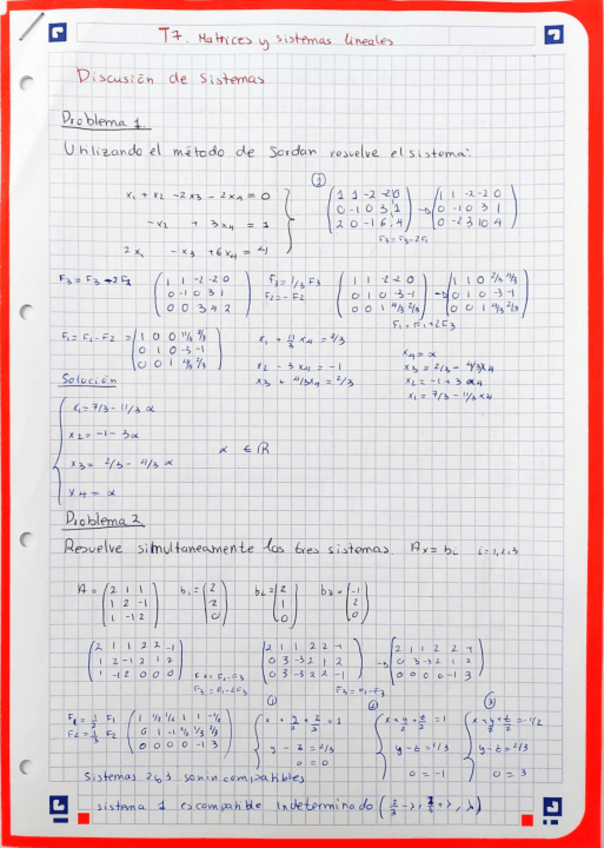 T7. Matrices y sistemas lineales
Discusión de sistemas
Problema 1.
Utilizando el método de Jordan resuelve el sistema:
x₁ + x₂ - 2x₃ - 2x₄ = 0
-x₂ + 3x₄ = 1
2x₁ - x₃ + 6x₄ = 4
①
(1 1 -2 -2 0
0 -1 0 3 1
2 0 -1 6 4)
→ (1 1 -2 -2 0
0 -1 0 3 1
0 -2 3 10 4)
F₃ = F₃ - 2F₁
F₃ = F₃ - 2F₂
(1 1 -2 -2 0
0 -1 0 3 1
0 0 3 4 2)
F₃ = 1/3 F₃
F₂ = -F₂
(1 1 -2 -2 0
0 1 0 -3 -1
0 0 1 4/3 2/3)
→ (1 1 0 2/3 4/3
0 1 0 -3 -1
0 0 1 4/3 2/3)
F₁ = F₁ + 2F₃
F₁ = F₁ - F₂ = (1 0 0 11/3 7/3
0 1 0 -3 -1
0 0 1 4/3 2/3)
x₁ + 11/3 x₄ = 7/3
x₂ - 3x₄ = -1
x₃ + 4/3 x₄ = 2/3
x₄ = α
x₃ = 2/3 - 4/3 x₄
x₂ = -1 + 3 x₄
x₁ = 7/3 - 11/3 x₄
Solución
x₁ = 7/3 - 11/3 α
x₂ = -1 - 3α
x₃ = 2/3 - 4/3 α
x₄ = α
α ∈ ℝ
Problema 2
Resuelve simultaneamente los tres sistemas. Ax = bᵢ i = 1,2,3
A = (2 1 1
1 2 -1
1 -1 2)
b₁ = (2
2
0)
b₂ = (2
1
0)
b₃ = (-1
2
0)
(2 1 1 2 2 -1
1 2 -1 2 1 2
1 -1 2 0 0 0)
(2 1 1 2 2 -1
0 3 -3 2 1 2
0 3 -3 2 2 -1)
→ (2 1 1 2 2 -1
0 3 -3 2 1 2
0 0 0 0 -1 3)
F₁ = 1/2 F₁
F₂ = 1/3 F₂
(1 1/2 1/2 1 1 -1/2
0 1 -1 2/3 1/3 2/3
0 0 0 0 -1 3)
①
x + y/2 + z/2 = 1
y - z = 2/3
0 = 0
②
x + y/2 + z/2 = 1
y - z = 1/3
0 = -1
③
x + y/2 + z/2 = -1/2
y - z = 2/3
0 = 3
Sistemas 2 y 3 son incompatibles
sistema 1 es compatible indeterminado (2/3 - λ, 2/3 + λ, λ)